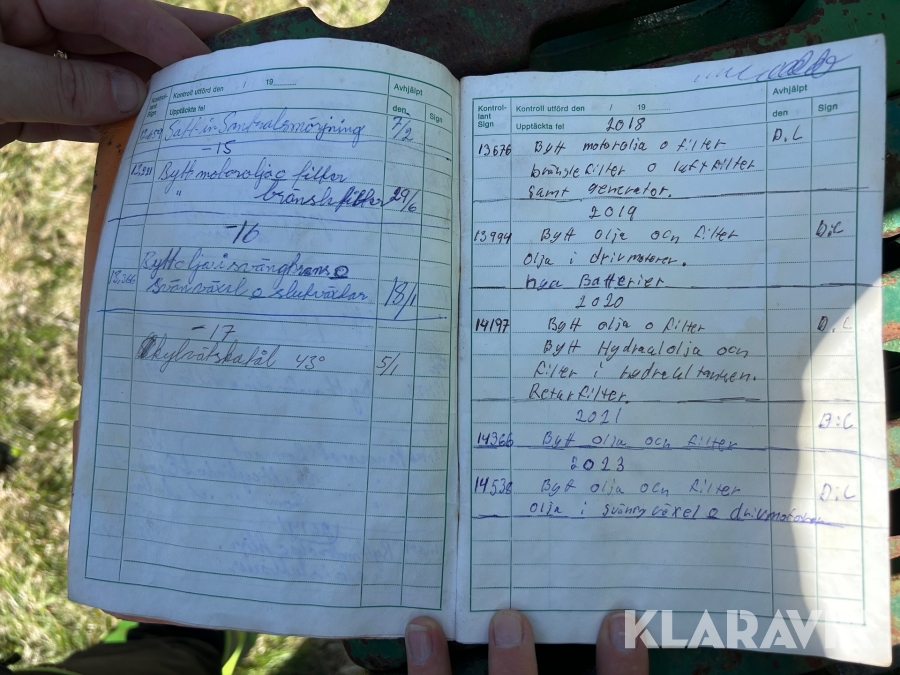 Kontrol-
lant
Sign
Kontroll utförd den / 19
Avhjälpt
Upptäckta fel
den
Sign
Satt in Sentralsmörjning 7/2
-15
Bytt motorolja o filter
" bränslefilter 29/6
-16
Bytt olja i svängkrans o
13,366 svänväxel o slutväxlar 18/1
-17
kylvätskatål 43° 5/1
Kontrol-
lant
Sign
Kontroll utförd den / 19
Avhjälpt
Upptäckta fel
den
Sign
2018
13676 Bytt motorolja o filter D.L
bränslefilter o luftfilter
samt generator.
2019
13994 Bytt olja och filter D:L
olja i drivmotorer.
nya Batterier
2020
14197 Bytt olja o filter D.L
Bytt Hydraulolja och
filter i hydraultanken.
Returfilter.
2021
14366 Bytt olja och filter D:L
2023
14538 Bytt olja och filter D:L
olja i svängvexel o drivmotorer
KLARAVIK